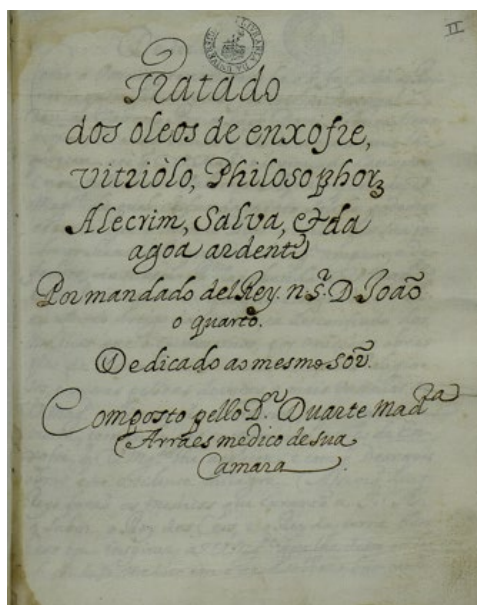 II
Tratado
dos oleos de enxofre,
vitriòlo, Philosophorȝ
Alecrim, Salva, & da
agoa ardente
Por mandado del Rey. n. Sr. D João
o quarto.
Dedicado ao mesmo Sõr.
Composto pello Dr. Duarte Madra
Arraes medico de sua
Camara.